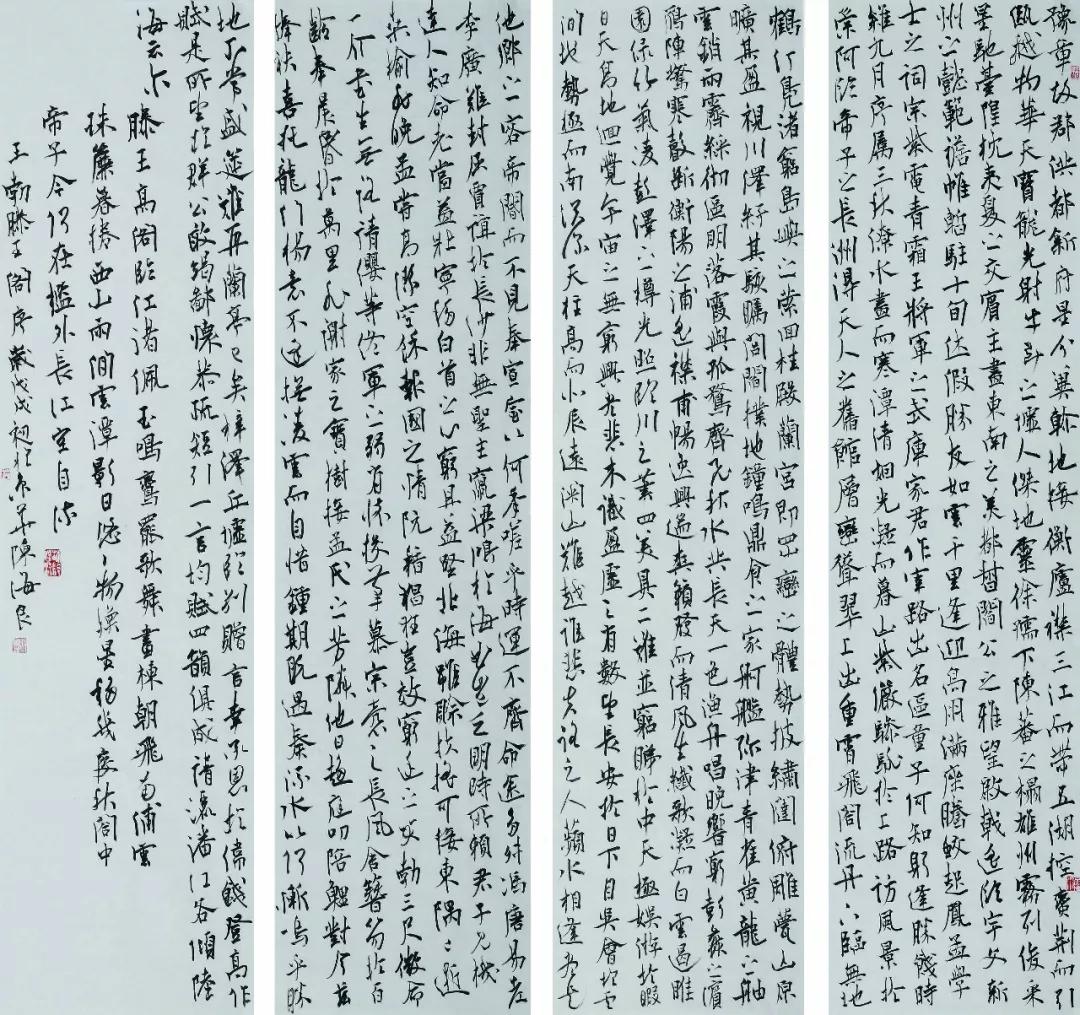 豫章故郡洪都新府星分翼軫地接衡廬襟三江而帶五湖控蠻荊而引
甌越物華天寶龍光射牛斗之墟人傑地靈徐孺下陳蕃之榻雄州霧列俊采
星馳臺隍枕夷夏之交賓主盡東南之美都督閻公之雅望棨戟遙臨宇文新
州之懿範襜帷暫駐十旬休假勝友如雲千里逢迎高朋滿座騰蛟起鳳孟學
士之詞宗紫電青霜王將軍之武庫家君作宰路出名區童子何知躬逢勝餞時
維九月序屬三秋潦水盡而寒潭清煙光凝而暮山紫儼驂騑於上路訪風景於
崇阿臨帝子之長洲得天人之舊館層巒聳翠上出重霄飛閣流丹下臨無地
鶴汀鳧渚窮島嶼之縈回桂殿蘭宮即岡巒之體勢披繡闥俯雕甍山原
曠其盈視川澤紆其駭矚閭閻撲地鐘鳴鼎食之家舸艦彌津青雀黃龍之舳
雲銷雨霽綵徹區明落霞與孤鶩齊飛秋水共長天一色漁舟唱晚響窮彭蠡之濱
雁陣驚寒聲斷衡陽之浦遙襟甫暢逸興遄飛爽籟發而清風生纖歌凝而白雲遏睢
園綠竹氣凌彭澤之樽光照臨川之筆四美具二難並窮睇於中天極娛游於暇
日天高地迥覺宇宙之無窮興盡悲來識盈虛之有數望長安於日下目吳會於雲
間地勢極而南溟深天柱高而北辰遠關山難越誰悲失路之人蘋水相逢盡是
他鄉之客帝閽而不見奉宣室以何年嗟乎時運不齊命途多舛馮唐易老
李廣難封屈賈誼於長沙非無聖主竄梁鴻於海曲豈乏明時所賴君子見機
達人知命老當益壯寧移白首之心窮且益堅北海雖賒扶搖可接東隅已逝
桑榆非晚孟嘗高潔空餘報國之情阮籍猖狂豈效窮途之哭勃三尺微命
一介書生無路請纓等終軍之弱冠有懷投筆慕宗愨之長風舍簪笏於百
齡奉晨昏於萬里非謝家之寶樹接孟氏之芳鄰他日趨庭叨陪鯉對今茲
捧袂喜托龍門楊意不逢撫凌雲而自惜鍾期既遇奏流水以何慚嗚乎勝
地不常盛筵難再蘭亭已矣梓澤丘墟臨別贈言幸承恩於偉餞登高作
賦是所望於群公敢竭鄙懷恭疏短引一言均賦四韻俱成請灑潘江各傾陸
海云爾
滕王高閣臨江渚佩玉鳴鸞罷歌舞畫棟朝飛南浦雲
珠簾暮捲西山雨閒雲潭影日悠悠物換星移幾度秋閣中
帝子今何在檻外長江空自流
王勃滕王閣序歲戊戌初於京華陳海良